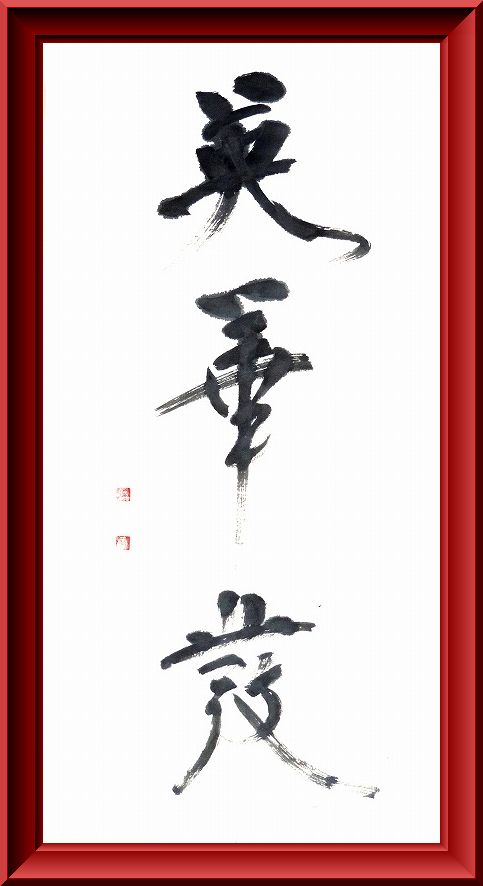 英華發